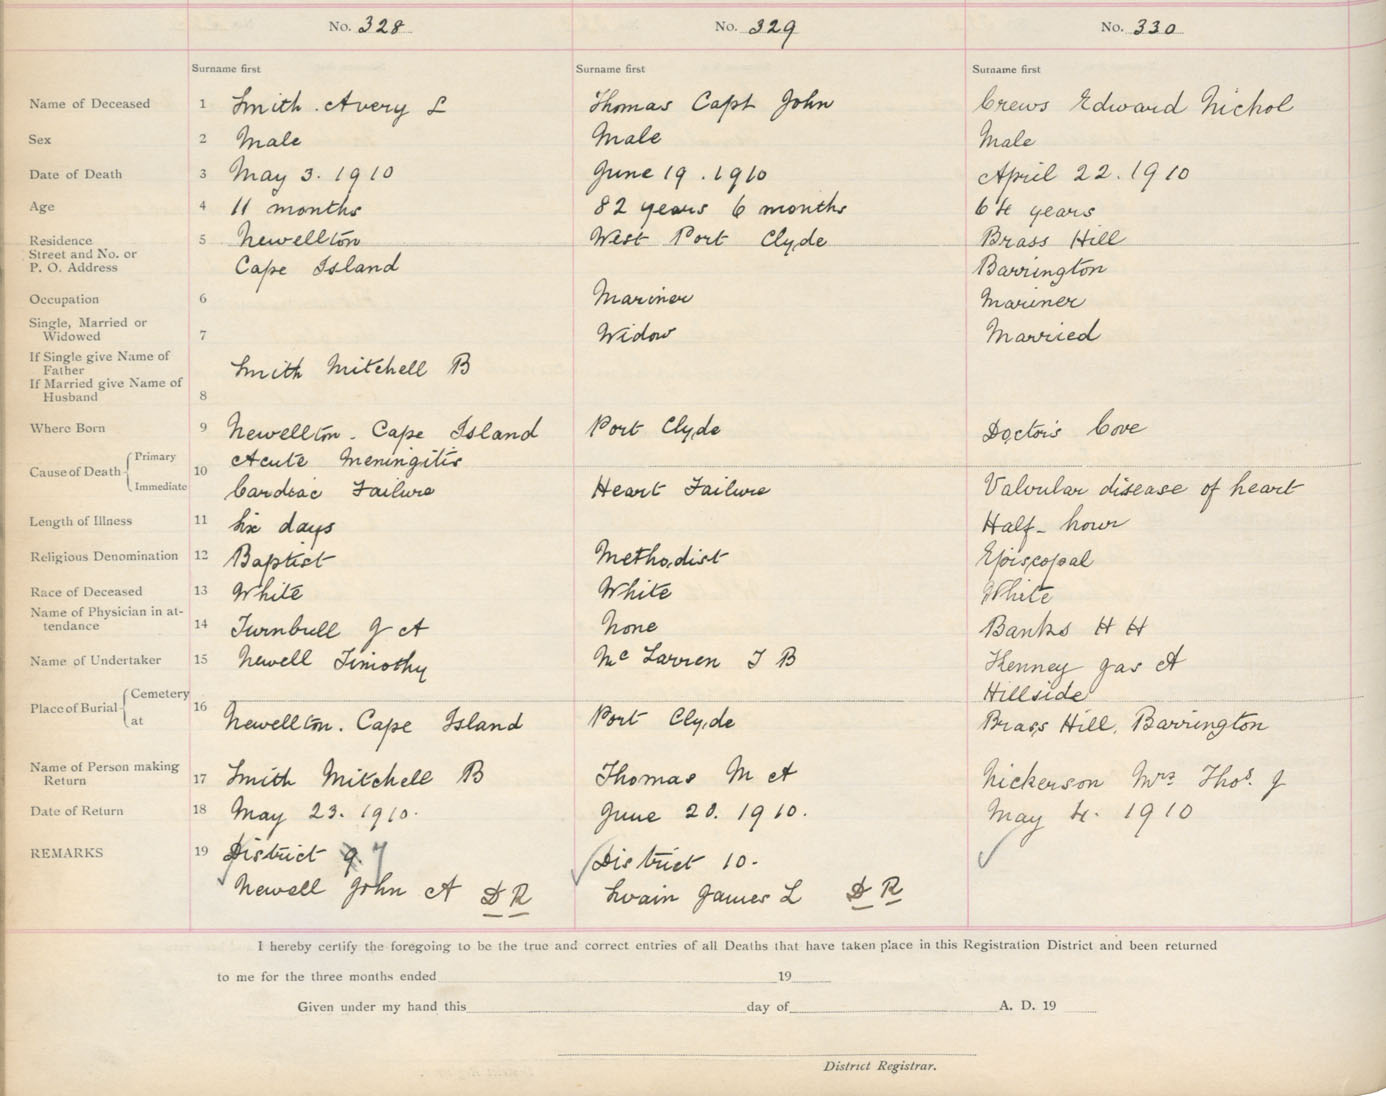 No. 328 No. 329 No. 330
Surname first Surname first Surname first
Name of Deceased 1 Smith. Avery L Thomas Capt John Crews Edward Nichol
Sex 2 Male Male Male
Date of Death 3 May 3. 1910 June 19. 1910 April 22. 1910
Age 4 11 months 82 years 6 months 64 years
Residence 5 Newellton West Port Clyde Brass Hill
Street and No. or
P. O. Address Cape Island Barrington
Occupation 6 Mariner Mariner
Single, Married or
Widowed 7 Widow Married
If Single give Name of
Father Smith Mitchell B
If Married give Name of
Husband 8
Where Born 9 Newellton. Cape Island Port Clyde Doctors Cove
Cause of Death Primary 10 Acute Meningitis
Immediate Cardiac Failure Heart Failure Valvular disease of heart
Length of Illness 11 Six days Half-hour
Religious Denomination 12 Baptist Methodist Episcopal
Race of Deceased 13 White White White
Name of Physician in at-
tendance 14 Turnbull J A None Banks H H
Name of Undertaker 15 Newell Timothy Mc Larren I B Kenney Jas A
Place of Burial Cemetery 16 Hillside
at Newellton. Cape Island Port Clyde Brass Hill, Barrington
Name of Person making
Return 17 Smith Mitchell B Thomas M A Nickerson Mrs Thos. J
Date of Return 18 May 23. 1910. June 20. 1910. May 4. 1910
REMARKS 19 District 9. 7 District 10.
Newell John A D R Swain James L D R
I hereby certify the foregoing to be the true and correct entries of all Deaths that have taken place in this Registration District and been returned
to me for the three months ended 19
Given under my hand this day of A. D. 19
District Registrar.